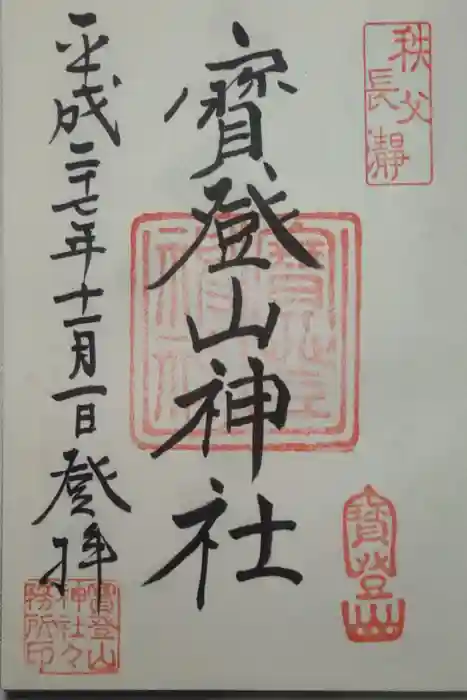 秩父
長瀞
寳登山神社
平成二十七年十一月一日登拝
寳登山
神社
寳登山
寳登山
神社々
務所印